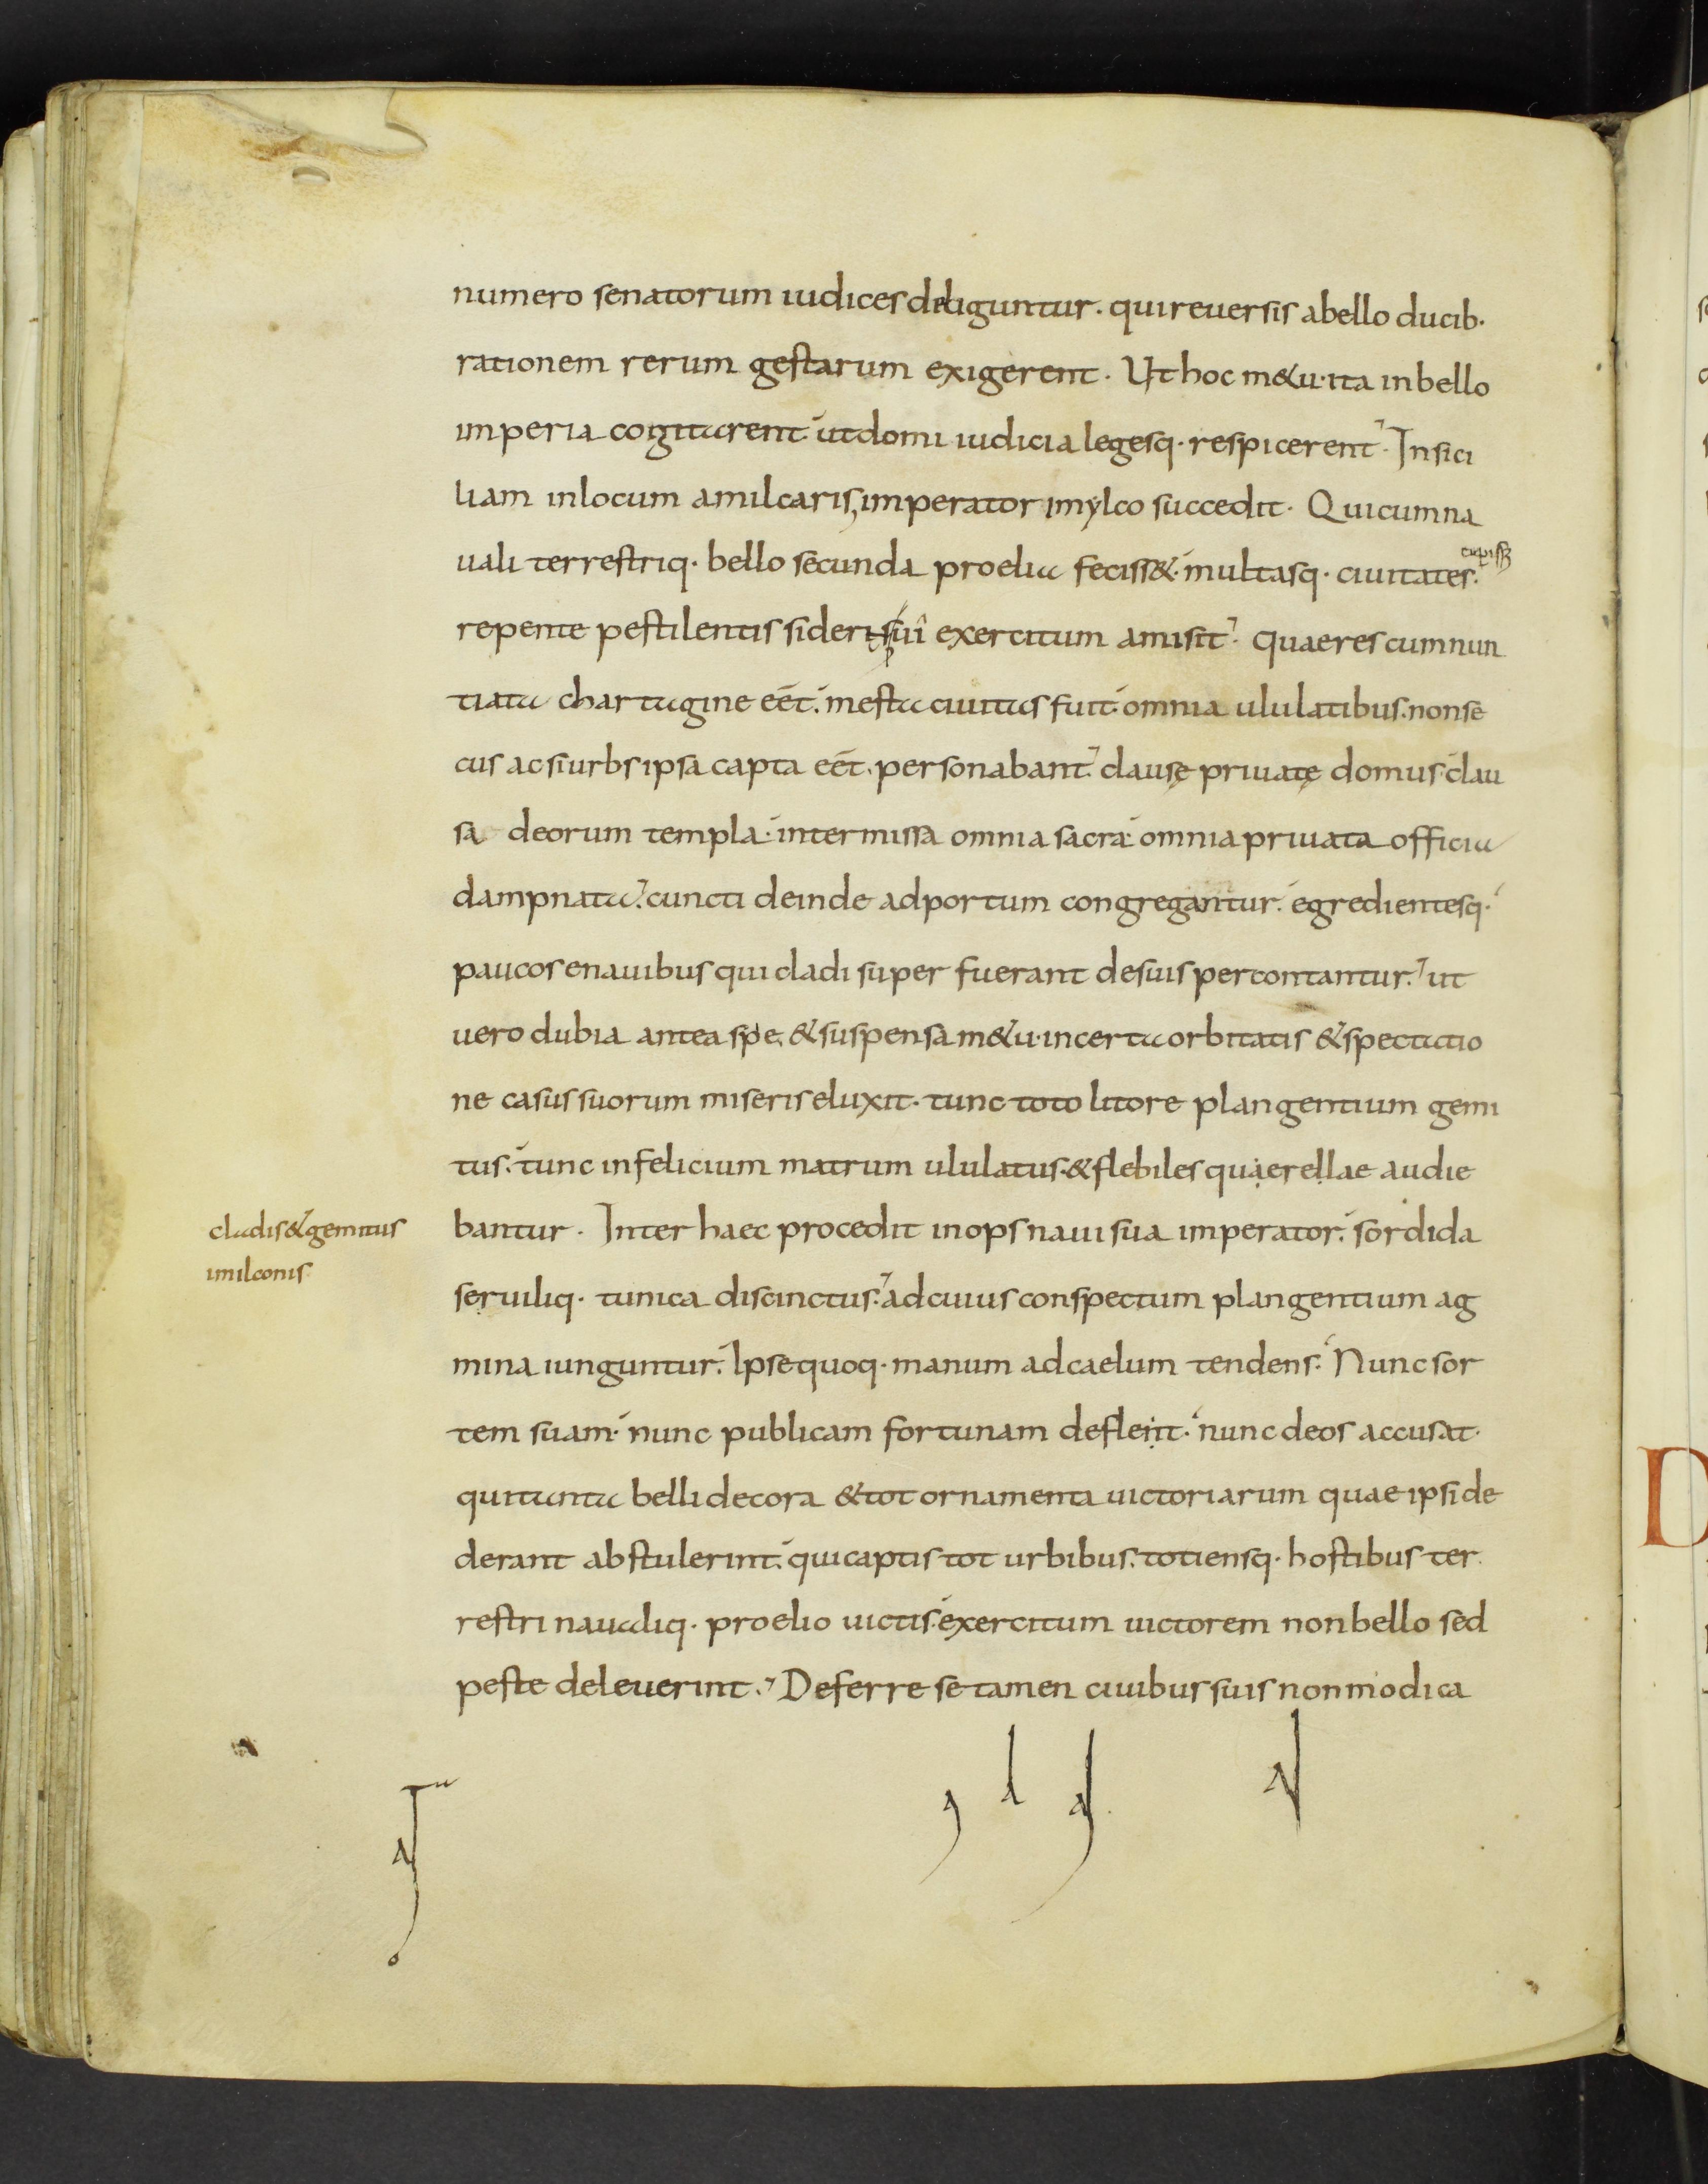 numero senatorum iudices deliguntur · qui reuersis a bello ducib·
rationem rerum gestarum exigerent · Ut hoc m&u· ita in bello
imperia cogitarent· ut domi iudicia legesq· respicerent· In sici
liam in locum amilcaris, imperator imylco succedit · Qui cum na
uali terrestriq· bello secunda proelia feciss&· multasq· ciuitates·
repente pestilentis sideris ui exercitum amisit· quae res cum nun
tiata chartagine eet· mesta ciuitas fuit· omnia ululatibus· non se
cus ac si urbs ipsa capta eet· personabant· clausę priuatę domus· clau
sa deorum templa· intermissa omnia sacra· omnia priuata officia
dampnata· cuncti deinde ad portum congregantur· egredientesq·
paucos e nauibus qui cladi super fuerant de suis percontantur· ut
uero dubia antea spe, & suspensa m&u· incerta orbitatis &spectatio
ne casus suorum miseris eluxit· tunc toto litore plangentium gemi
tus· tunc infelicium matrum ululatus· & flebiles quaerellae audie
bantur · Inter haec procedit inops naui sua imperator· sordida
seruiliq· tunica discinctus· ad cuius conspectum plangentium ag
mina iunguntur· Ipse quoq· manum ad caelum tendens· Nunc sor
tem suam· nunc publicam fortunam defleit· nunc deos accusat·
qui tanta belli decora & tot ornamenta uictoriarum quae ipsi de
derant abstulerint· qui captis tot urbibus· totiensq· hostibus ter
restri naualiq· proelio uictis· exercitum uictorem non bello sed
peste deleuerint· Deferre se tamen ciuibus suis non modica
cladis & gemitus
imilconis